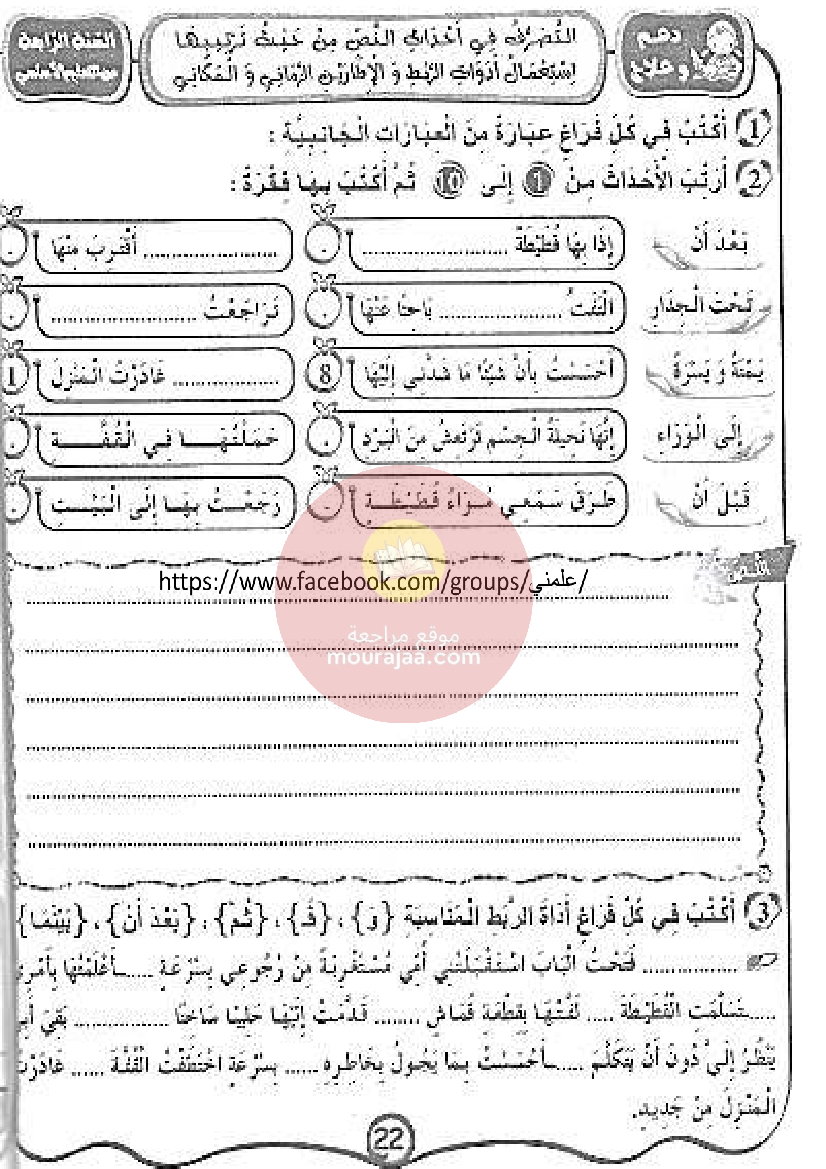 دعم وعلاج
التَّصَرُّفُ فِي أَحْدَاثِ النَّصِّ مِنْ حَيْثُ تَرْتِيبُهَا
اِسْتِعْمَالُ أَدَوَاتِ الرَّبْطِ وَ الْإِطَارَيْنِ الزَّمَانِي وَ الْمَكَانِي
السنة الرابعة
من التعليم الأساسي
1 أَكْتُبُ فِي كُلِّ فَرَاغٍ عِبَارَةً مِنَ الْعِبَارَاتِ الْجَانِبِيَّةِ :
2 أُرَتِّبُ الْأَحْدَاثَ مِنْ 1 إِلَى 10 ثُمَّ أَكْتُبُ بِهَا فِقْرَةً :
بَعْدَ أَنْ إِذَا بِهَا قُطَيْطَةٌ ...................... ...................... أَقْتَرِبَ مِنْهَا
تَحْتَ الْجِدَارِ اَلْتَفِتُ ..................... بَاحِثًا عَنْهَا تَرَاجَعْتُ ......................
يَمْنَةً وَ يَسْرَةً أَحْسَسْتُ بِأَنَّ شَيْئًا مَا شَدَّنِي إِلَيْهَا 8 .................. غَادَرْتُ الْمَنْزِلَ 1
إِلَى الْوَرَاءِ إِنَّهَا نَحِيلَةُ الْجِسْمِ تَرْتَعِشُ مِنَ الْبَرْدِ حَمَلْتُهَــا فِي الْقُفَّــة
قَبْلَ أَنْ طَرَقَ سَمَعِي مُوَاءُ قُطَيْطَـةٍ رَجَعْـتُ بِهَـا إِلَى الْبَيْـتِ
https://www.facebook.com/groups/علمني/
موقع مراجعة
mourajaa.com
3 أَكْتُبُ فِي كُلِّ فَرَاغٍ أَدَاةَ الرَّبْطِ الْمُنَاسِبَةِ {وَ}، {فَـ}، {ثُمَّ}، {بَعْدَ أَنْ}، {بَيْنَمَا}
................ فَتَحْتُ الْبَابَ اسْتَقْبَلَتْنِي أُمِّي مُسْتَغْرِبَةً مِنْ رُجُوعِي بِسُرْعَةٍ .....أَعْلَمْتُهَا بِأَمْرِي
.....تَسَلَّمَتِ الْقُطَيْطَةَ .... لَفَّتْهَا بِقِطْعَةِ قُمَاشٍ ....... قَدَّمَتْ إِلَيْهَا حَلِيبًا سَاخِنًا ............... بَقِيَ أَبِي
يَنْظُرُ إِلَيَّ دُونَ أَنْ يَتَكَلَّمَ .....أَحْسَسْتُ بِمَا يَجُولُ بِخَاطِرِهِ ..... بِسُرْعَةٍ اخْتَطَفْتُ الْقُفَّةَ ..... غَادَرْتُ
الْمَنْزِلَ مِنْ جَدِيدٍ.
22